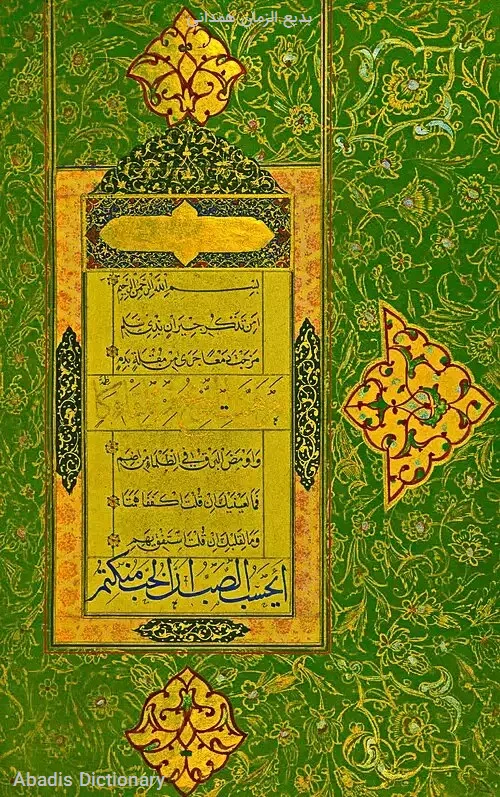 بدیع الزمان همدانی
بسم الله الرحمن الرحيم
امن تذكر جيران بذي سلم
مزجت دمعا جرى من مقلة بدم
واومض البرق في الظلماء من اضم
فما لعينيك ان قلت اكففا همتا
وما لقلبك ان قلت استفق يهم
ايحسب الصب ان الحب منكتم
Abadis Dictionary